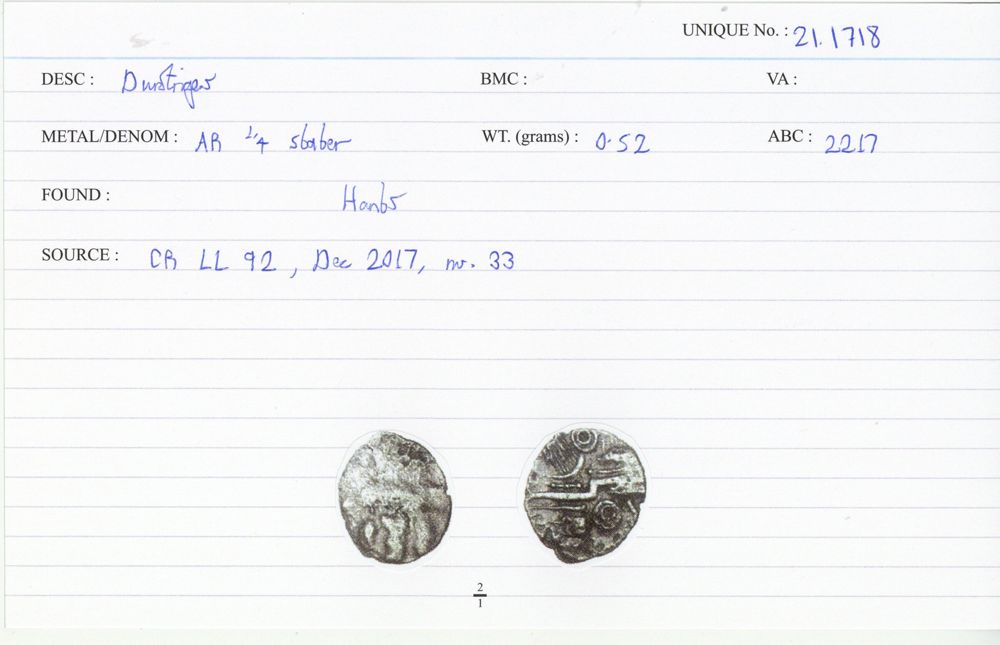 UNIQUE No. : 21.1718
DESC : Durotriges BMC : VA :
METAL/DENOM : AR 1/4 stater WT. (grams) : 0.52 ABC : 2217
FOUND : Hants
SOURCE : CR LL 92, Dec 2017, nr. 33
2
1